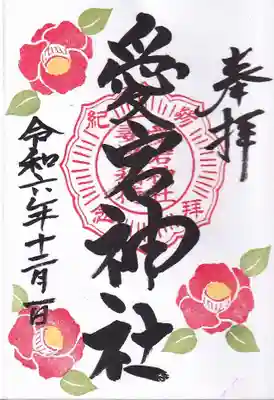 奉拝
愛宕神社
參拜紀念
令和六年十二月一日